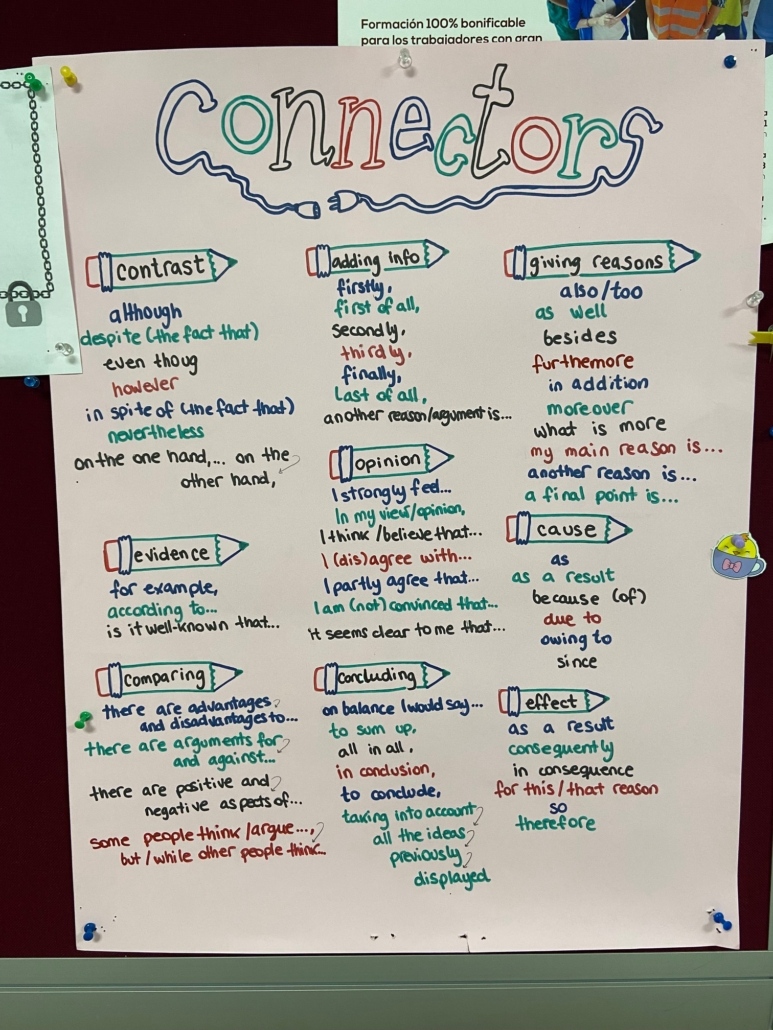 Formación 100% bonificable
para los trabajadores con gran
Connectors
contrast
although
despite (the fact that)
even thoug
however
in spite of (the fact that)
nevertheless
on the one hand,... on the
other hand,
evidence
for example,
according to...
is it well-known that...
comparing
there are advantages
and disadvantages to...
there are arguments for
and against...
there are positive and
negative aspects of...
some people think/argue...,
but/while other people think...
adding info
firstly,
first of all,
secondly,
thirdly,
finally,
Last of all,
another reason/argument is...
opinion
I strongly feel...
In my view/opinion,
I think/believe that...
I (dis)agree with...
I partly agree that...
I am (not) convinced that...
it seems clear to me that...
concluding
on balance I would say...
to sum up,
all in all,
in conclusion,
to conclude,
taking into account
all the ideas
previously
displayed
giving reasons
also/too
as well
besides
furthemore
in addition
moreover
what is more
my main reason is...
another reason is...
a final point is...
cause
as
as a result
because (of)
due to
owing to
since
effect
as a result
consequently
in consequence
for this/that reason
so
therefore